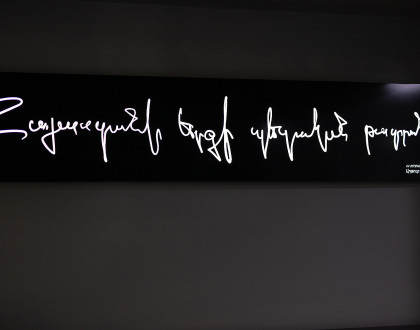 Հայաստանի երգի պետական թատրո